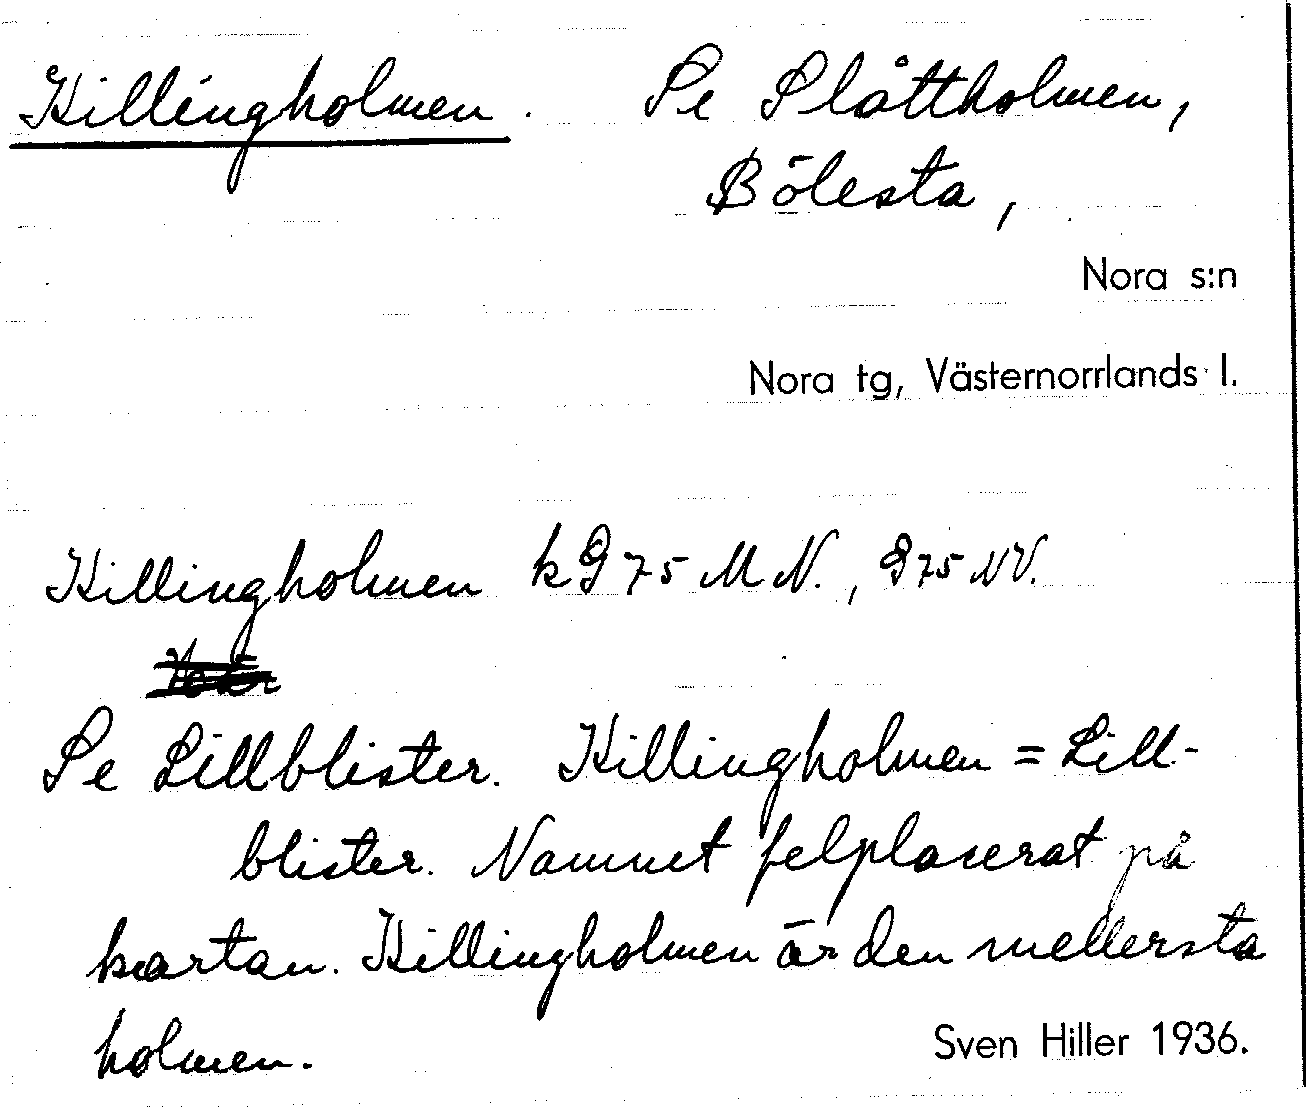 Killingholmen. Se Slåttholmen,
Bölesta,
Nora s:n
Nora tg, Västernorrlands l.
Killingholmen kG 75 M N., G 75 NV.
Se Lillblister. Killingholmen = Lill-
blister. Namnet felplacerat på
kartan. Killingholmen är den mellersta
holmen.
Sven Hiller 1936.